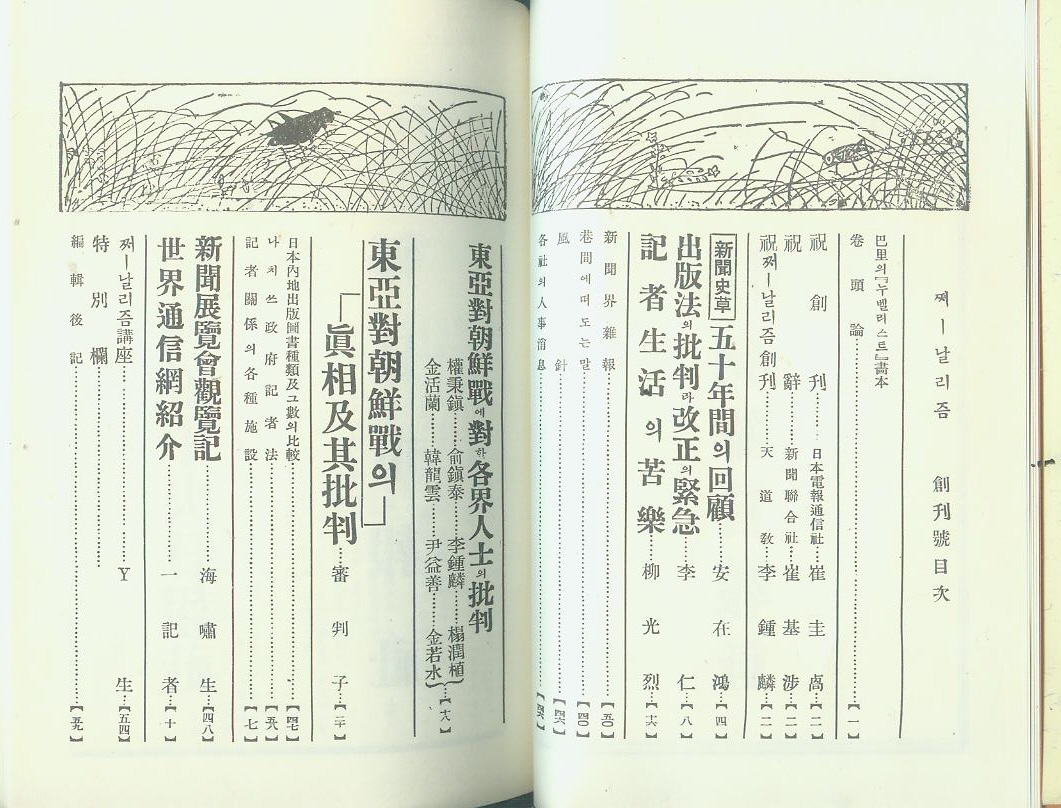 쩌ー날리즘 創刊號目次
巴里의『누벨리스트』畵本
卷頭論……【一】
祝創刊……日本電報通信社…崔圭卨…【二】
祝辭……新聞聯合社…崔基涉…【二】
祝쩌ー날리즘創刊……天道敎…李鍾麟…【二】
新聞史草 五十年間의回顧……安在鴻…【四】
出版法의批判과改正의緊急……李仁…【八】
記者生活의苦樂……柳光烈…【十六】
新聞界雜報……【五〇】
巷間에떠도는말……【四〇】
風針……【四六】
各社의人事消息……
東亞對朝鮮戰에對한各界人士의批判
權秉鎭……俞鎭泰……李鍾麟……楊潤植
金活蘭……韓龍雲……尹益善……金若水…【十八】
東亞對朝鮮戰의
「眞相及其批判」……審判子…【二十】
日本內地出版圖書種類及그數의比較……【四七】
나치쓰政府記者法……【五八】
記者關係의各種施設……【七】
新聞展覽會觀覽記……海嘯生…【四八】
世界通信網紹介……一記者…【十】
쩌ー날리즘講座……Y生…【五四】
特別欄……
編輯後記……【五九】